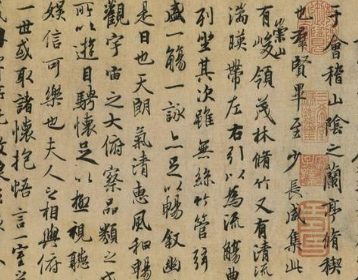 于會稽山陰之蘭亭脩稧
也羣賢畢至少長咸集此
有崇山峻領茂林脩竹又有清流
湍暎帶左右引以為流觴曲
列坐其次雖無絲竹管弦
盛一觴一詠亦足以暢敘幽
是日也天朗氣清惠風和暢
觀宇宙之大俯察品類之盛
所以遊目騁懷足以極視聽
娛信可樂也夫人之相與俯
一世或取諸懷抱悟言一室之